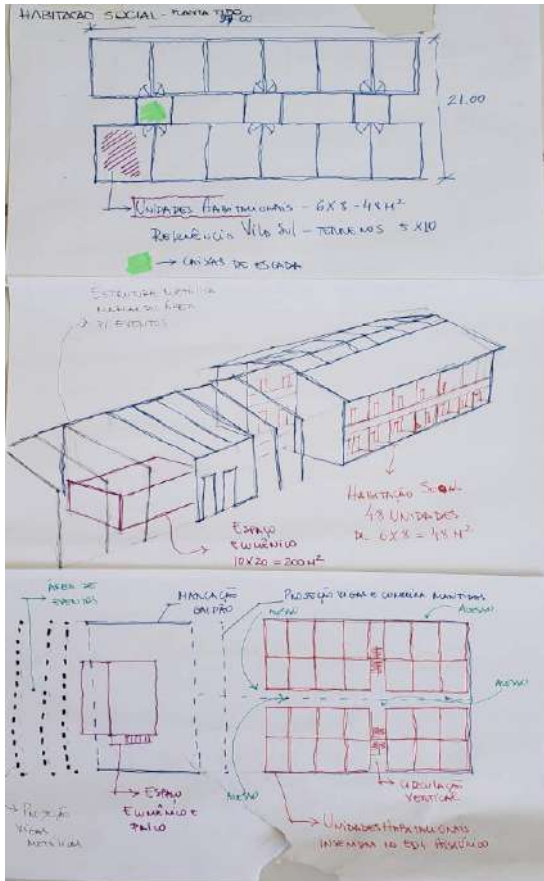 HABITAÇÃO SOCIAL - PLANTA TIPO
21.00
UNIDADES HABITACIONAIS - 6X8 - 48 M²
REFERÊNCIA VILA SUL - TERRENOS 5X10
→ CAIXAS DE ESCADA
ESTRUTURA METÁLICA
P/ EVENTOS
HABITAÇÃO SOCIAL
48 UNIDADES
DE 6X8 = 48 M²
ESPAÇO
ECUMÊNICO
10X20 = 200 M²
ÁREA DE
EVENTOS
MARCAÇÃO
GALPÃO
PROJEÇÃO VIGAS E CUMEEIRA MANTIDAS
ACESSO
ACESSO
ACESSO
ACESSO
ESPAÇO
ECUMÊNICO E
PALCO
CIRCULAÇÃO
VERTICAL
→ PROJEÇÃO
VIGAS
METÁLICAS
UNIDADES HABITACIONAIS